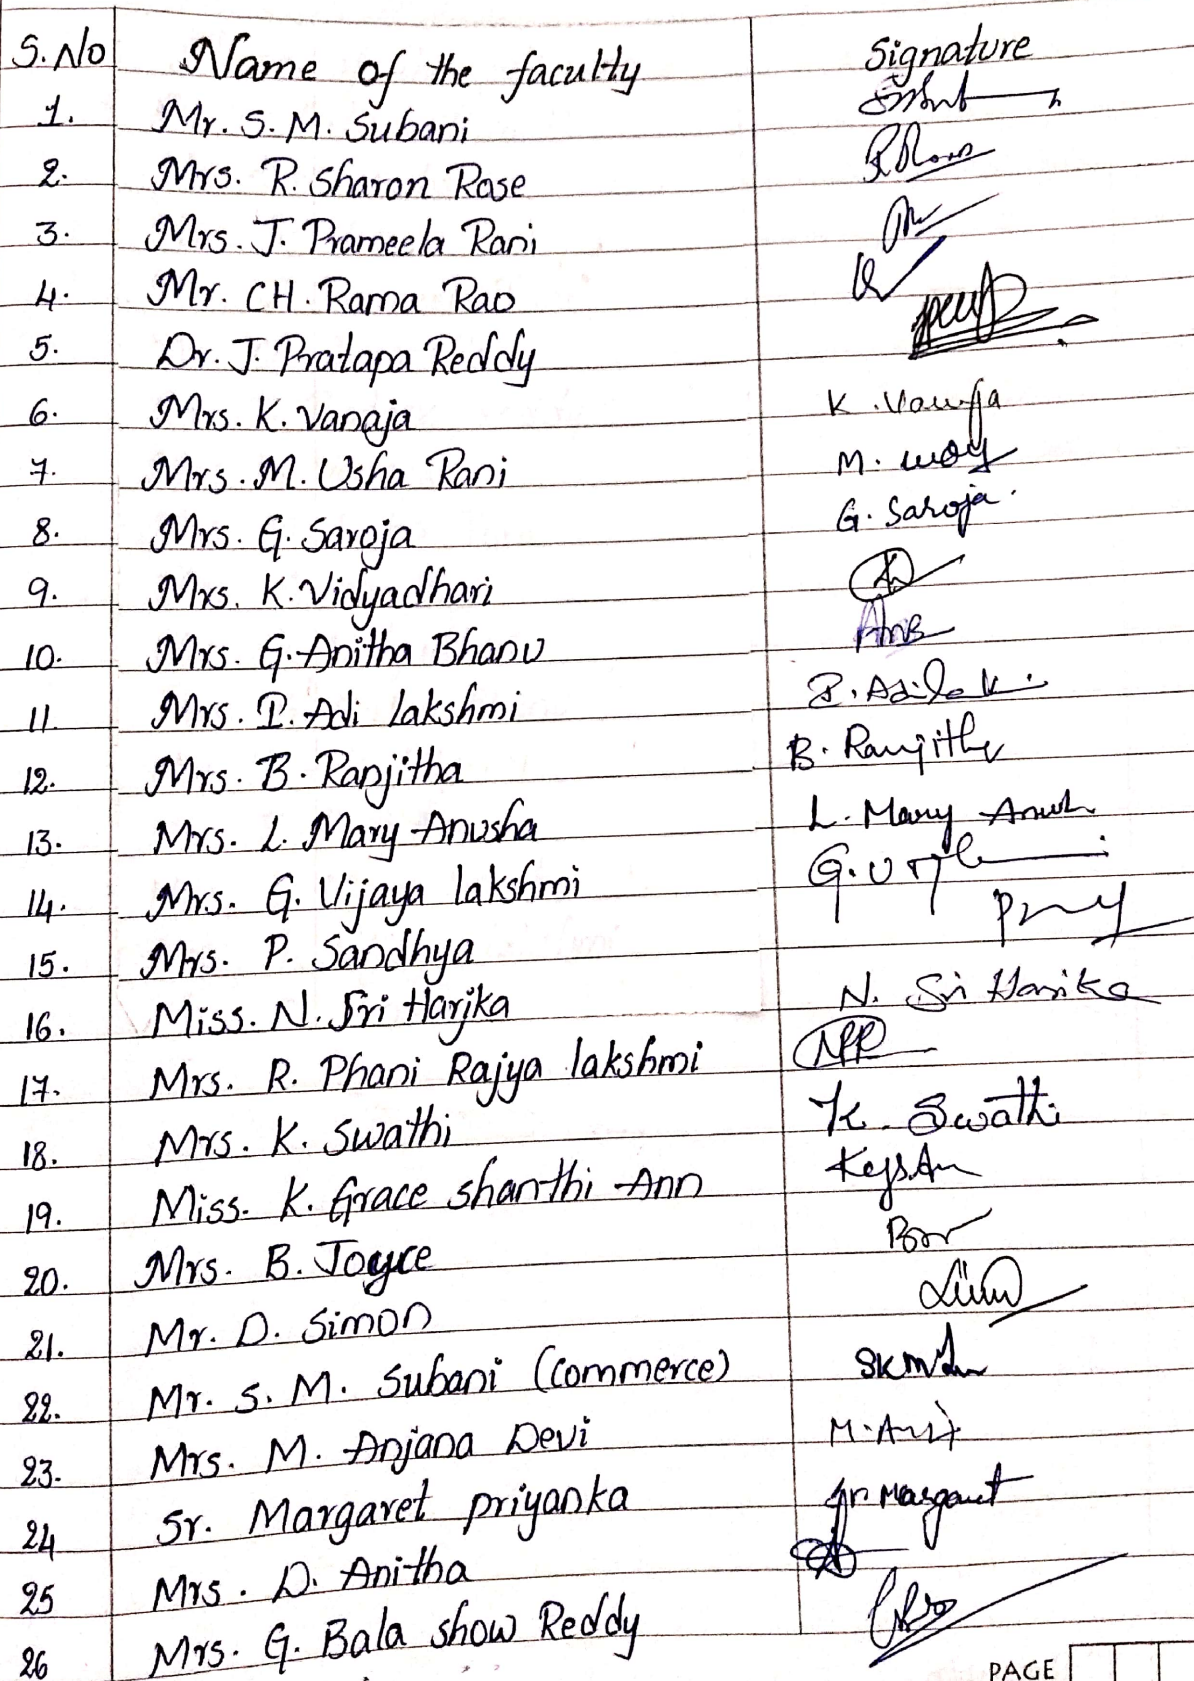 S.No Name of the faculty Signature
1. Mr. S. M. Subani
2. Mrs. R. Sharon Rose
3. Mrs. J. Prameela Rani
4. Mr. CH. Rama Rao
5. Dr. J. Pratapa Reddy
6. Mrs. K. Vanaja K. Vanaja
7. Mrs. M. Usha Rani M.
8. Mrs. G. Saroja G. Saroja.
9. Mrs. K. Vidyadhari
10. Mrs. G. Anitha Bhanu
11. Mrs. P. Adi lakshmi
12. Mrs. B. Ranjitha B. Ranjitha
13. Mrs. L. Mary Anusha L. Mary
14. Mrs. G. Vijaya lakshmi
15. Mrs. P. Sandhya
16. Miss. N. Sri Harika N. Sri Harika
17. Mrs. R. Phani Rajya lakshmi
18. Mrs. K. Swathi K. Swathi
19. Miss. K. Grace shanthi Ann
20. Mrs. B. Joyce
21. Mr. D. Simon
22. Mr. S. M. Subani (Commerce)
23. Mrs. M. Anjana Devi
24 Sr. Margaret priyanka Sr Margaret
25 Mrs. D. Anitha
26 Mrs. G. Bala show Reddy
PAGE